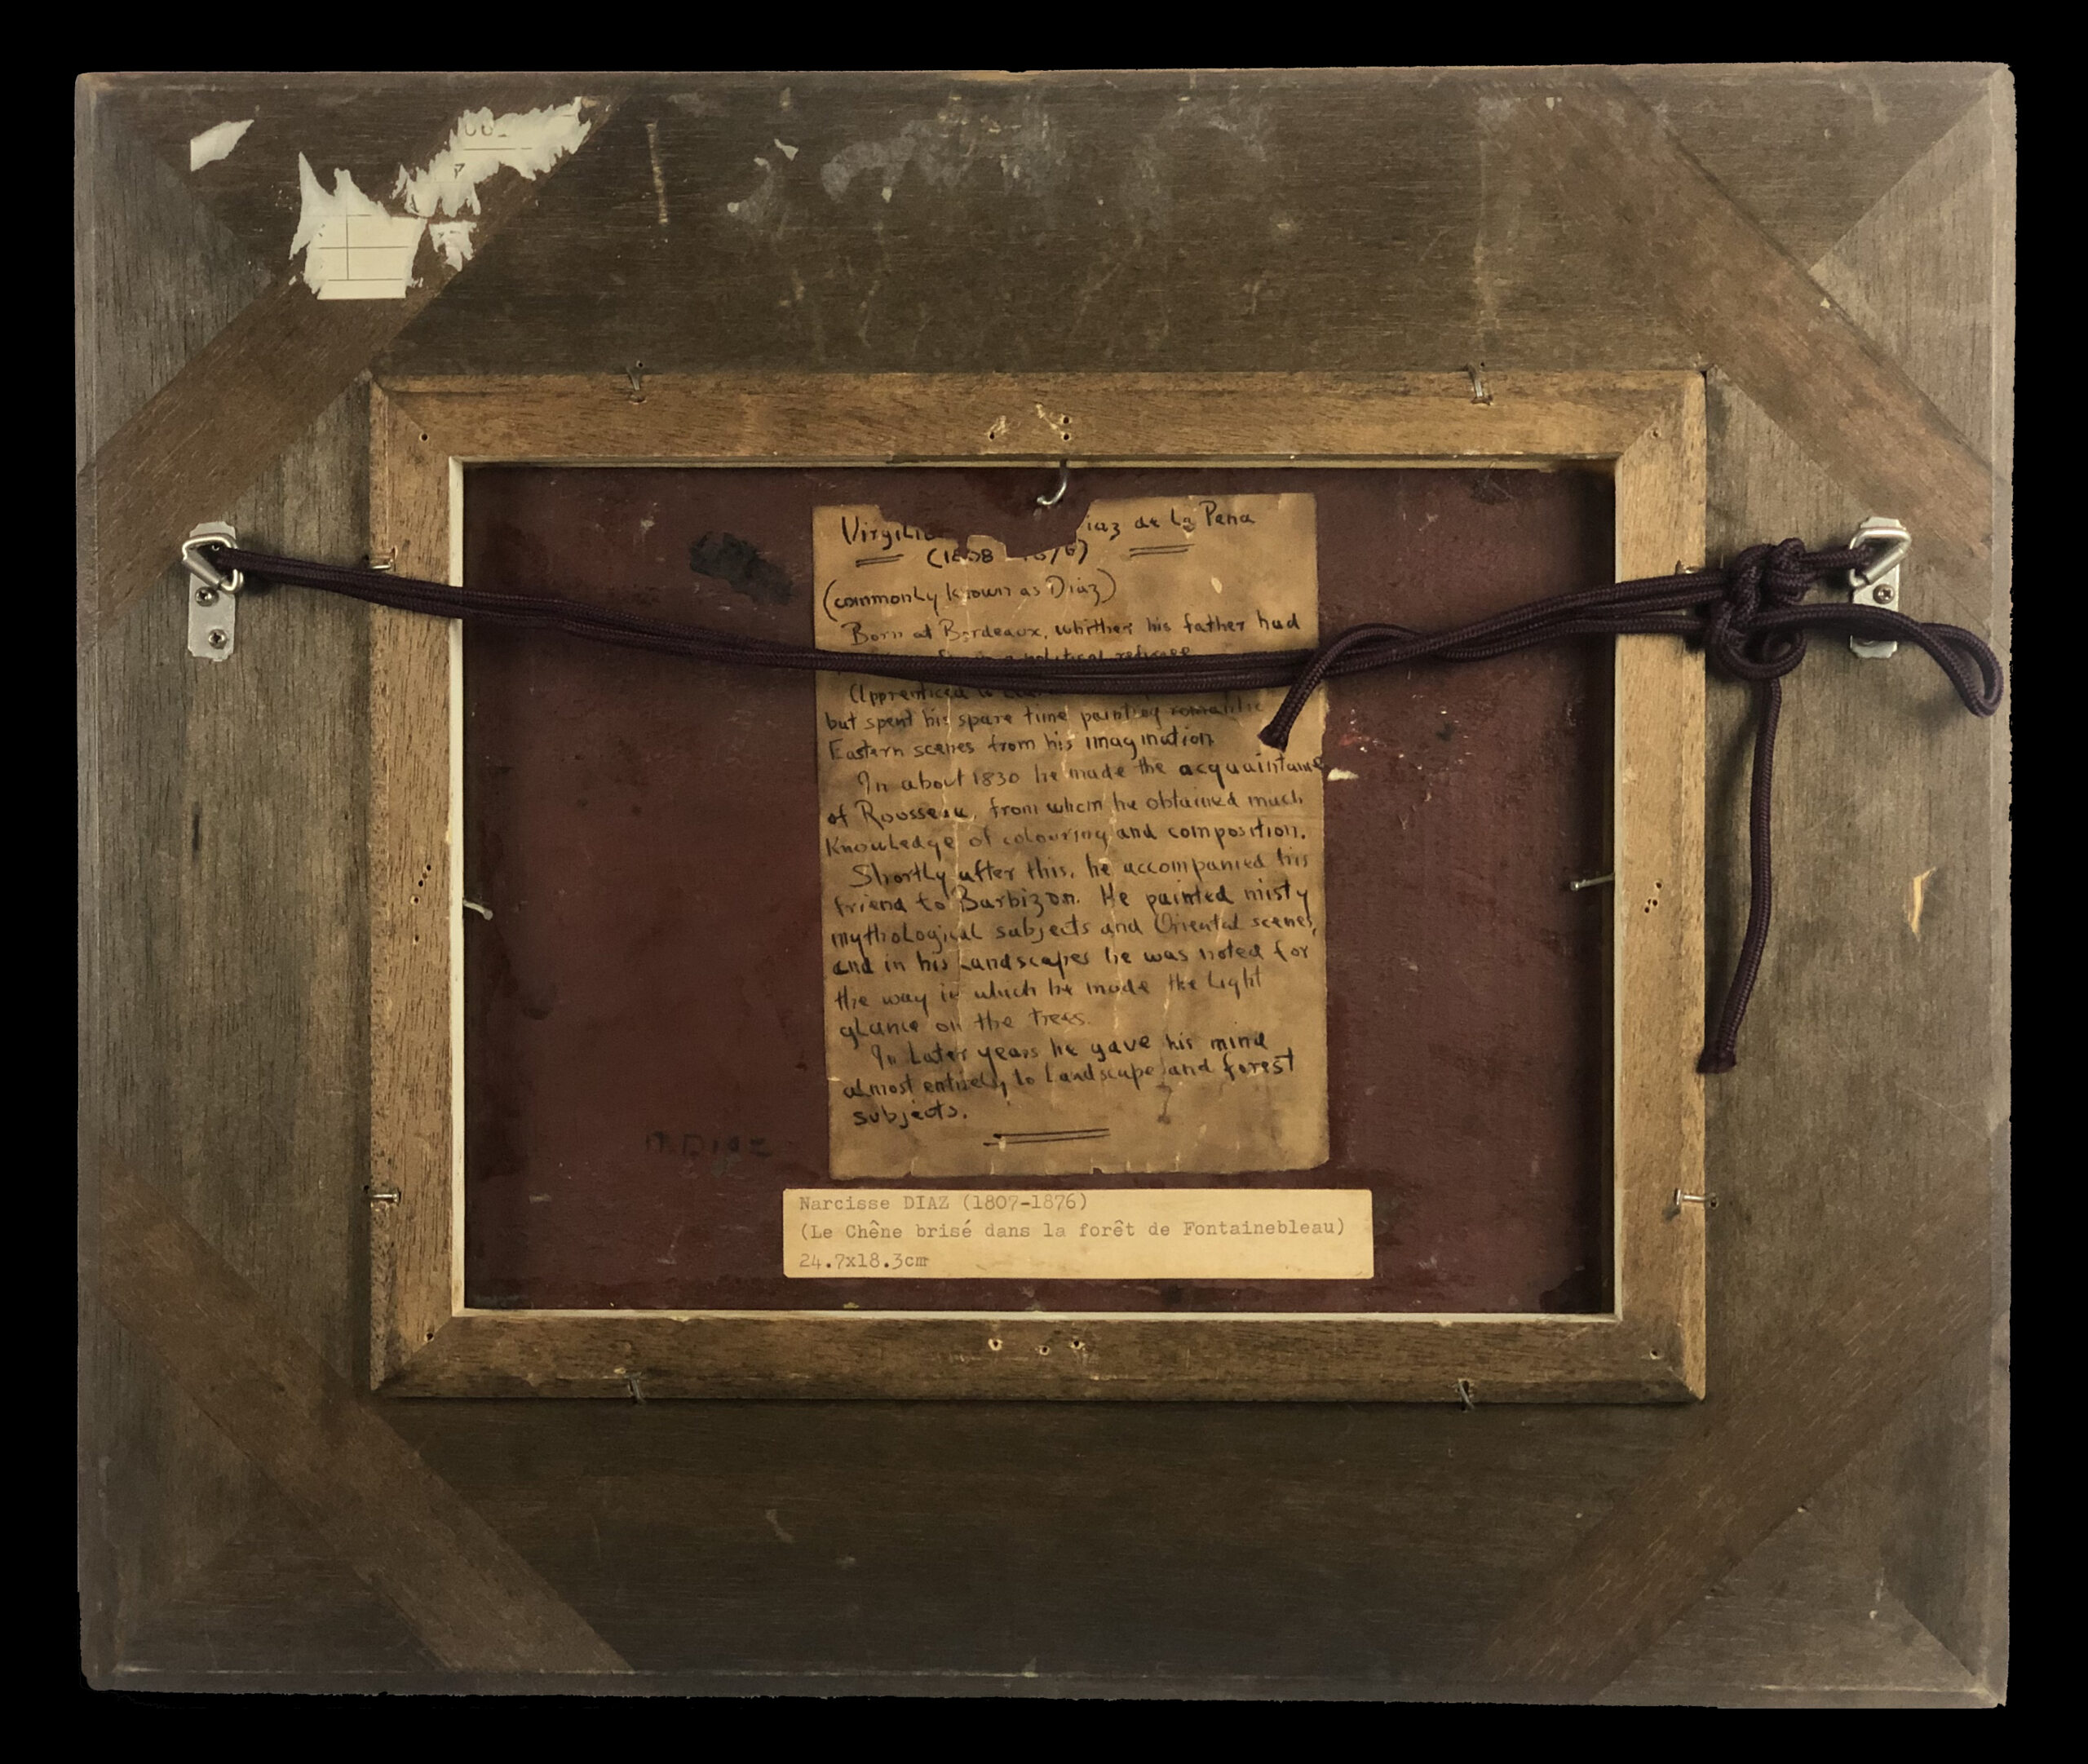 Virgilio iaz de La Pena
(1808 1876)
(commonly known as Diaz)
Born at Bordeaux, whither his father had
political refugee
Apprenticed
but spent his spare time painting romantic
Eastern scenes from his imagination
In about 1830 he made the acquaintance
of Rousseau, from whom he obtained much
Knowledge of colouring and composition.
Shortly after this, he accompanied his
friend to Barbizon. He painted misty
mythological subjects and Oriental scenes,
and in his Landscapes he was noted for
the way in which he made the light
glance on the trees.
In Later years he gave his mind
almost entirely to Landscape and forest
subjects.
N. DIAZ
Narcisse DIAZ (1807-1876)
(Le Chêne brisé dans la forêt de Fontainebleau)
24.7x18.3cm